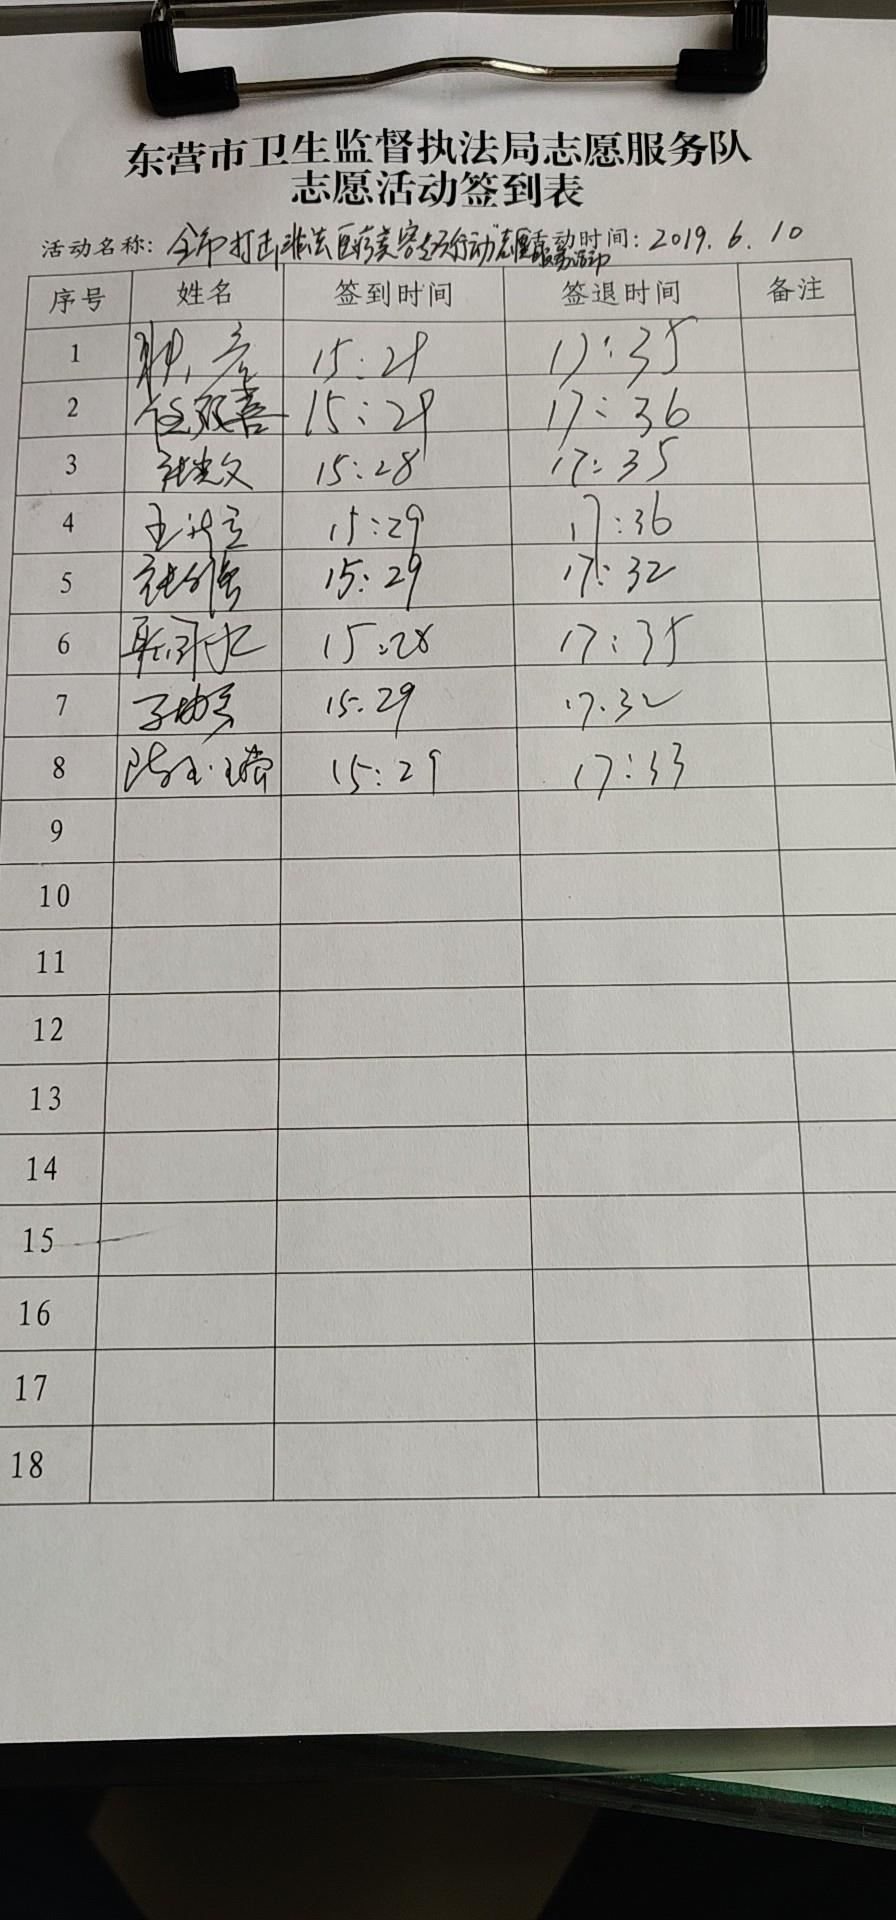 东营市卫生监督执法局志愿服务队
志愿活动签到表
活动名称：全市打击非法医疗美容专项行动"志愿服务活动 活动时间：2019.6.10
序号 姓名 签到时间 签退时间 备注
1 15:29 17:35
2 15:29 17:36
3 15:28 17:35
4 15:29 17:36
5 15:29 17:32
6 15:28 17:35
7 15:29 17:32
8 15:29 17:33
9
10
11
12
13
14
15
16
17
18